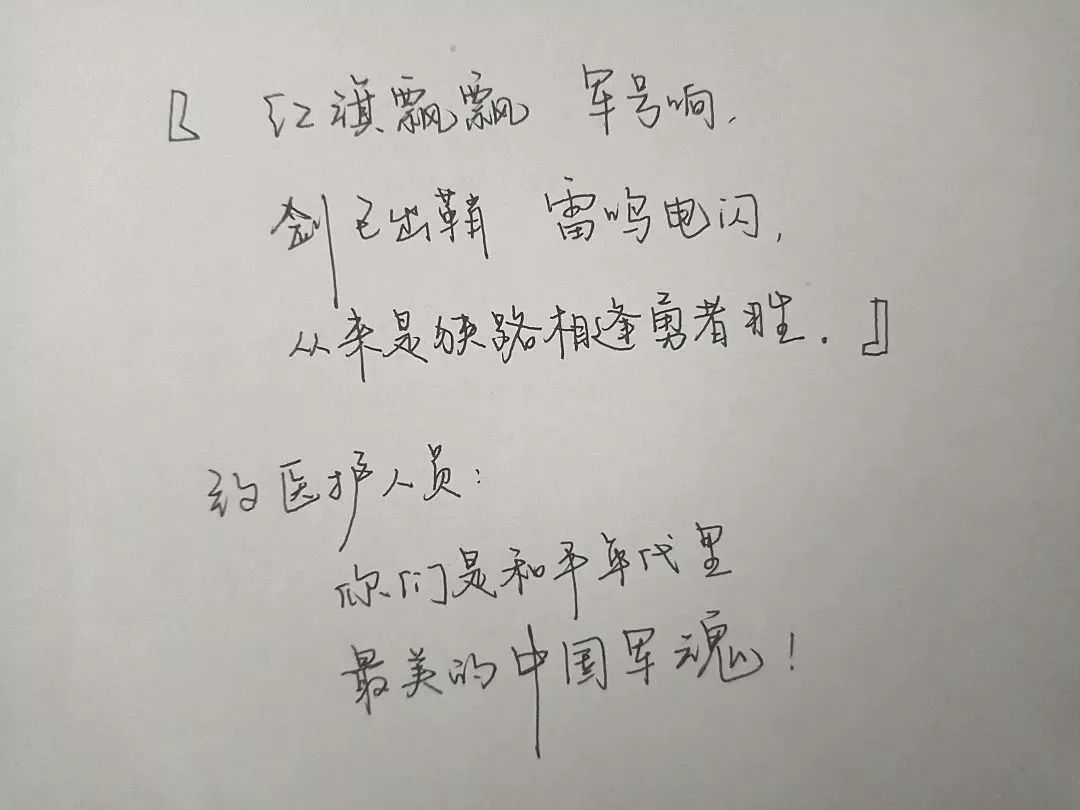 『 红旗飘飘 军号响,
剑已出鞘 雷鸣电闪,
从来是狭路相逢勇者胜. 』
致医护人员:
你们是和平年代里
最美的中国军魂!